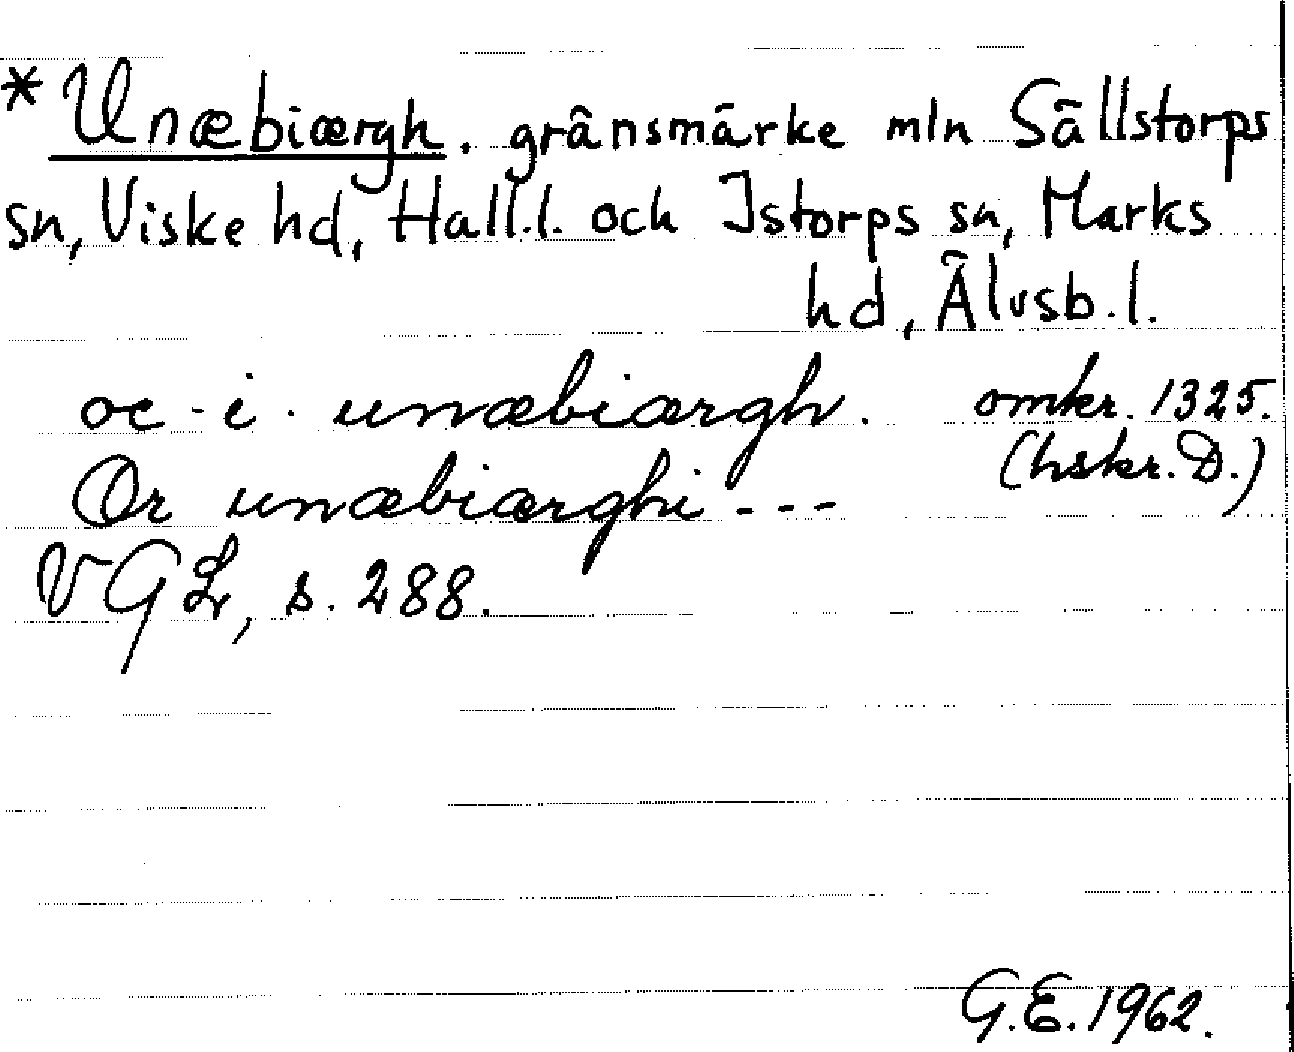 *Unæbiærgh. gränsmärke mln Sällstorps
sn, Viske hd, Hall.l. och Istorps sn, Marks
hd, Älvsb.l.
oc · i · unæbiærgh. omkr. 1325.
(hskr. D.)
Or unæbiærghi ---
VGL, s. 288.
G.E. 1962.